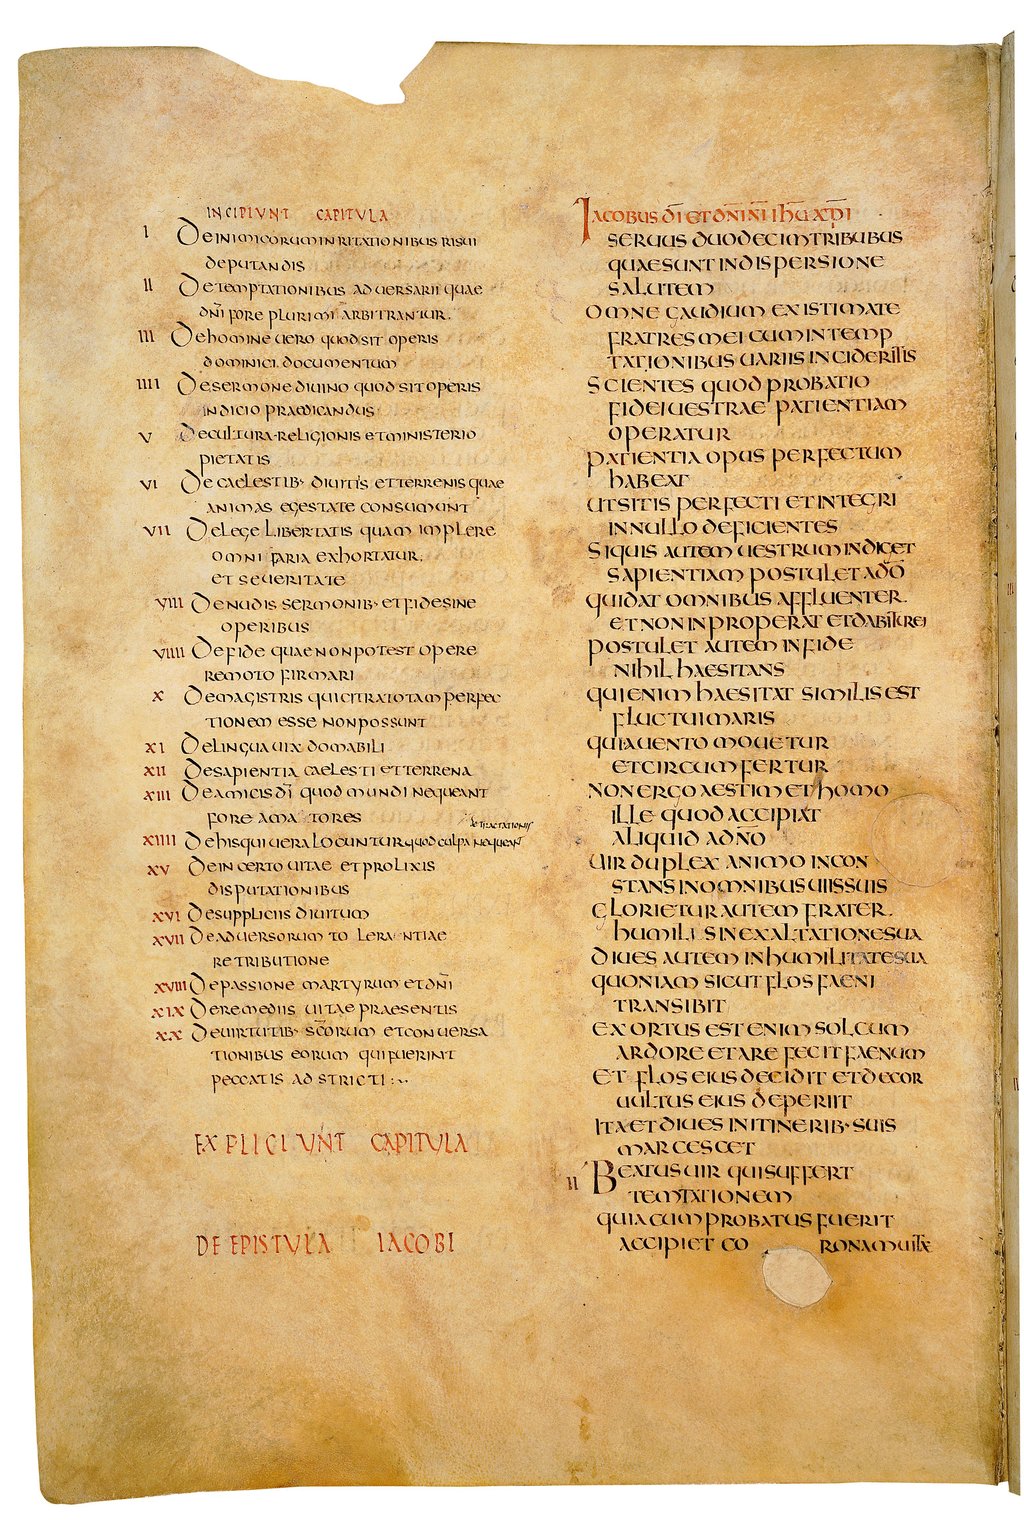 INCIPIUNT CAPITULA
I De inimicorum inritationibus risui
deputandis
II De temptationibus adversarii quae
dñi fore plurimi arbitrantur.
III De homine uero quod sit operis
dominici documentum
IIII De sermone diuino quod sit operis
indicio praedicandus
V De cultura religionis et ministerio
pietatis
VI De caelestib· diuitis et terrenis quae
animas egestate consumunt
VII De lege libertatis quam implere
omni faria exhortatur.
et seueritate
VIII De nudis sermonib· et fide sine
operibus
VIIII De fide quae non potest opere
remoto firmari
X De magistris qui citra totam perfec
tionem esse non possunt
XI De lingua uix domabili
XII De sapientia caelesti et terrena
XIII De amicis dī quod mundi nequeant
fore amatores
detractationis
XIIII De his qui uera locuntur quod culpa nequeant
XV De incerto uitae et prolixis
disputationibus
XVI De suppliciis diuitum
XVII De aduersorum tolerantiae
retributione
XVIII De passione martyrum et dñi
XIX De remediis uitae praesentis
XX De uirtutib· scōrum et conuersa
tionibus eorum qui fuerint
peccatis adstricti
EXPLICIUNT CAPITULA
DE EPISTULA IACOBI
Iacobus dī et dñi nī ihū xpī
seruus duodecim tribubus
quae sunt in dispersione
salutem
omne gaudium existimate
fratres mei cum in temp
tationibus uariis incideritis
scientes quod probatio
fidei uestrae patientiam
operatur
patientia opus perfectum
habeat
ut sitis perfecti et integri
in nullo deficientes
si quis autem uestrum indiget
sapientiam postulet a dō
qui dat omnibus affluenter
et non inproperat et dabitur ei
postulet autem in fide
nihil haesitans
qui enim haesitat similis est
fluctui maris
qui a uento mouetur
et circumfertur
non ergo aestimet homo
ille quod accipiat
aliquid a dño
uir duplex animo incon
stans in omnibus uiis suis
glorietur autem frater
humilis in exaltatione sua
diues autem in humilitate sua
quoniam sicut flos faeni
transibit
exortus est enim sol cum
ardore et arefecit faenum
et flos eius decidit et decor
uultus eius deperiit
ita et diues in itinerib· suis
marcescet
II Beatus uir qui suffert
temptationem
quia cum probatus fuerit
accipiet co ronam uitae